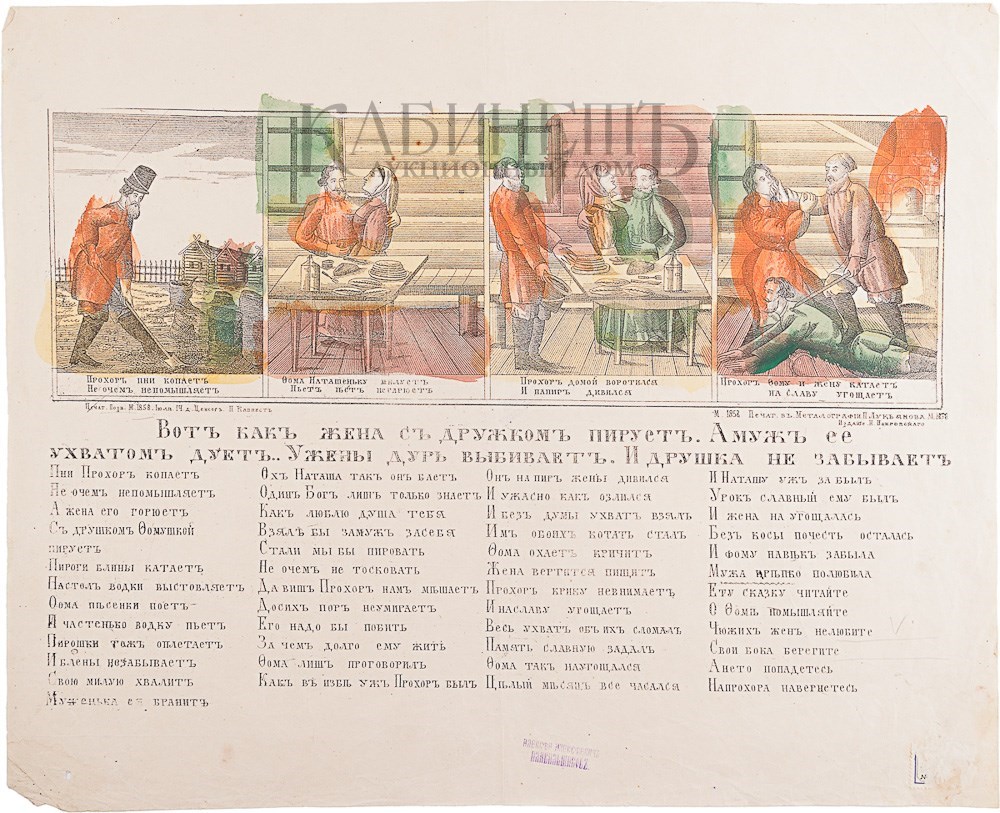 КАБИНЕТЪ
АУКЦИОННЫЙ ДОМ
Прохоръ пни копаетъ
Не очемъ непомышляетъ
Ѳома Наташеньку цѣлуетъ
Пьетъ ѣстъ
Прохоръ домой воротился
И напиръ дивился
Прохоръ Ѳому и жену катаетъ
на славу угощаетъ
Печат. Позв. М. 1858. Июля 14 д. Ценсоръ Н
М. 1858 Печат. въ Металографіи П. Лукьянова
Издание
Вотъ какъ жена съ дружкомъ пируетъ. Амужъ ее
ухватомъ дуетъ.. Ужены дурь выбиваетъ. И друшка не забываетъ
Пни Прохоръ копаетъ
Не очемъ непомышляетъ
А жена его горюетъ
Съ друшкомъ Ѳомушкой
пируетъ
Пироги блины катаетъ
Настолъ водки выстовляетъ
Ѳома пѣсенки поетъ
И частенько водку пьетъ
Пирошки тожъ оплетаетъ
И блены незабываетъ
Свою милую хвалитъ
Муженька ея бранитъ
Охъ Наташа такъ онъ баетъ
Одинъ Богъ лишъ только знаетъ
Какъ люблю душа тебя
Взялъ бы замужъ засебя
Стали мы бы пировать
Не очемъ не тосковать
Да вишъ Прохоръ намъ мѣшаетъ
Досихъ поръ неумираетъ
Его надо бы побить
За чемъ долго ему жить
Ѳома лишъ проговорилъ
Какъ въ избѣ ужъ Прохоръ былъ
Онъ на пиръ жены дивился
И ужасно какъ озлился
И безъ думы ухватъ взялъ
Имъ обоихъ котать сталъ
Ѳома охаетъ кричитъ
Жена вертится пищитъ
Прохоръ крику невнимаетъ
И наславу угощаетъ
Весь ухватъ объ ихъ сломалъ
Память славную задалъ
Ѳома такъ наугощался
Цѣлый мѣсяцъ все чесался
И Наташу ужъ за былъ
Урокъ славный ему былъ
И жена на угощалась
Безъ косы почесть осталась
И Фому навѣкъ забыла
Мужа крѣпко полюбила
Ету сказку читайте
О Ѳомѣ помышляйте
Чюжихъ женъ нелюбите
Свои бока берегите
Ането попадетесь
Напрохора навернетесь